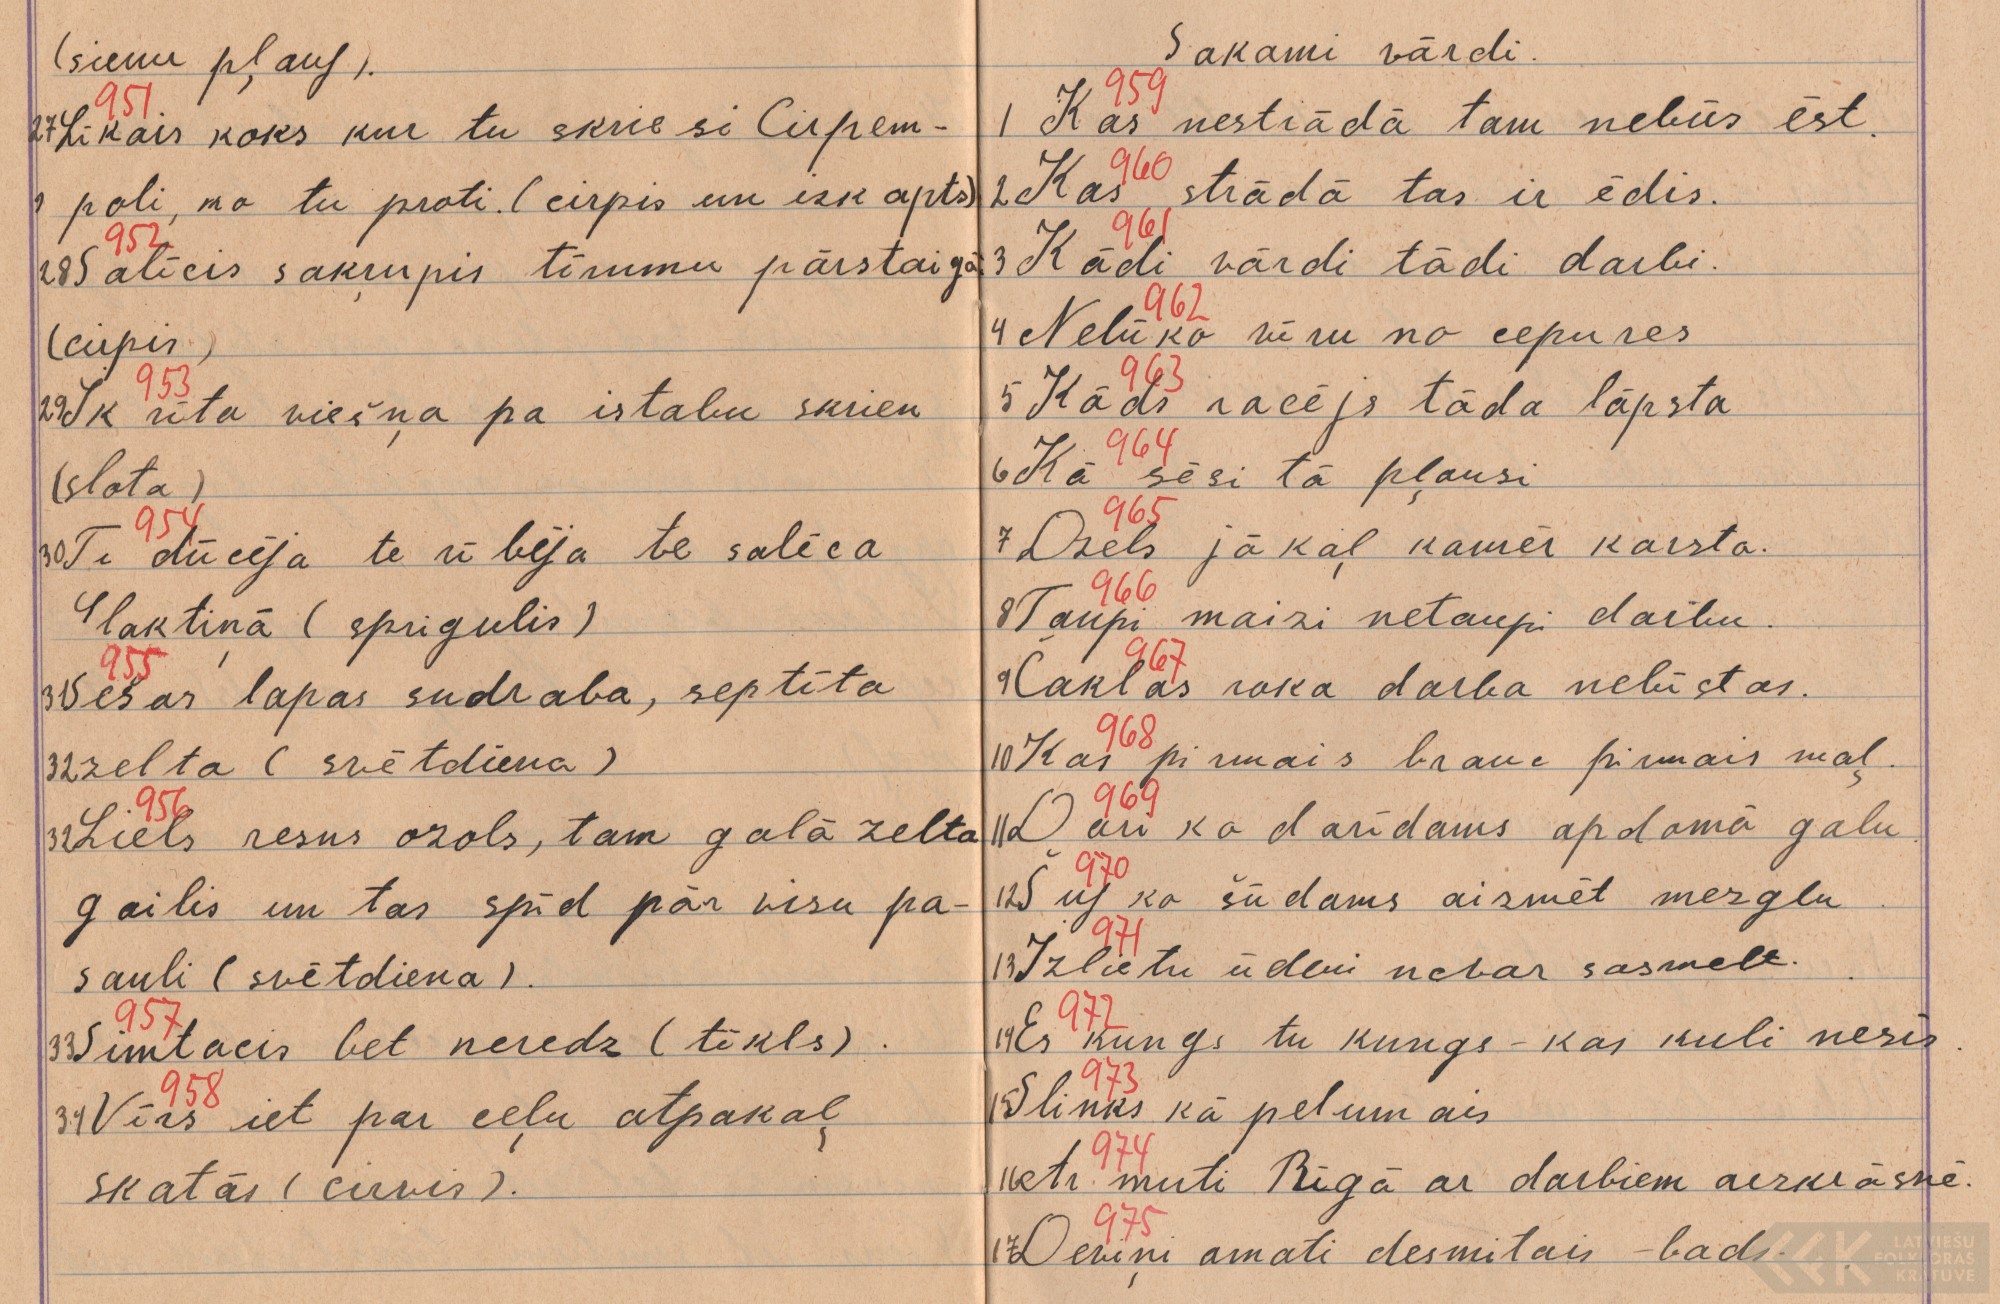 (sienu pļauj).
951
27 Līkais koks kur tu skriesi Cirpem-
poli, ko tu proti. (cirpis un izkapts)
952
28 Salīcis sakņupis tīrumu pārstaigā
(cirpis)
953
29 Ik rīta viešņa pa istabu skrien
(slota)
954
30 Te dūcēja te rībēja te salēca
laktiņā (sprigulis)
955
31 Sešas lapas sudraba, septīta
32 zelta (svētdiena)
956
32 Liels resns ozols, tam galā zelta
gailis un tas spīd pār visu pa-
sauli (svētdiena).
957
33 Simtacis bet neredz (tīkls).
958
34 Vīrs iet par ceļu atpakaļ
skatās (cirvis).
Sakami vārdi.
959
1 Kas nestrādā tam nebūs ēst.
960
2 Kas strādā tas ir ēdis.
961
3 Kādi vārdi tādi darbi.
962
4 Nelūko vīru no cepures
963
5 Kāds racējs tāda lāpsta
964
6 Kā sēsi tā pļausi
965
7 Dzels jākaļ kamēr karsta.
966
8 Taupi maizi netaupi darbu.
967
9 Čaklas roka darba nebīstas.
968
10 Kas pirmais brauc pirmais maļ.
969
11 Dari ko darīdams apdomā galu
970
12 Šuj ko šūdams aizmēt mezglu
971
13 Izlietu ūdeni nevar sasmelt.
972
14 Es kungs tu kungs - kas kuli nesīs.
973
15 Slinks kā pelumais
974
16 Ar muti Rīgā ar darbiem aizkrāsnē.
975
17 Deviņi amati desmitais - bads.
LATVIEŠU
FOLKLORAS
KRĀTUVE